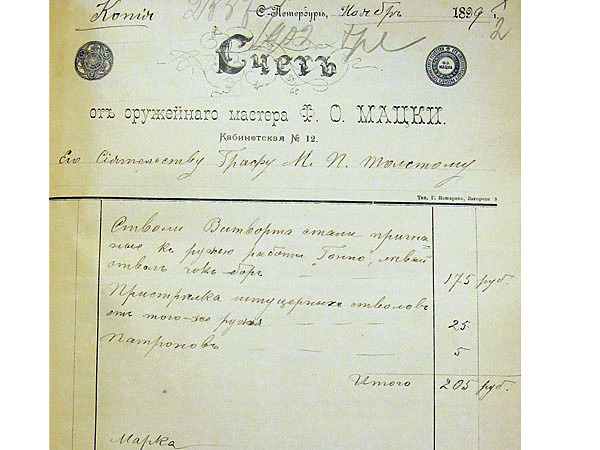 Копія
С.-Петербургъ, Ноябрь 1899 г.
Счетъ
отъ оружейнаго мастера Ф. О. МАЦКИ.
Кабинетская № 12.
Его Сіятельству Графу М. П. Толстому
Тип. Г. Пожарова, Загород. 8
Стволы Витворта стали пригна-
ные къ ружью работы Гонно, лѣвый
стволъ чокъ-боръ — 175 руб.
Пристрѣлка штуцерныхъ стволовъ
отъ того-же ружья — — — 25
Патроновъ — — — 5
Итого 205 руб.
Марка